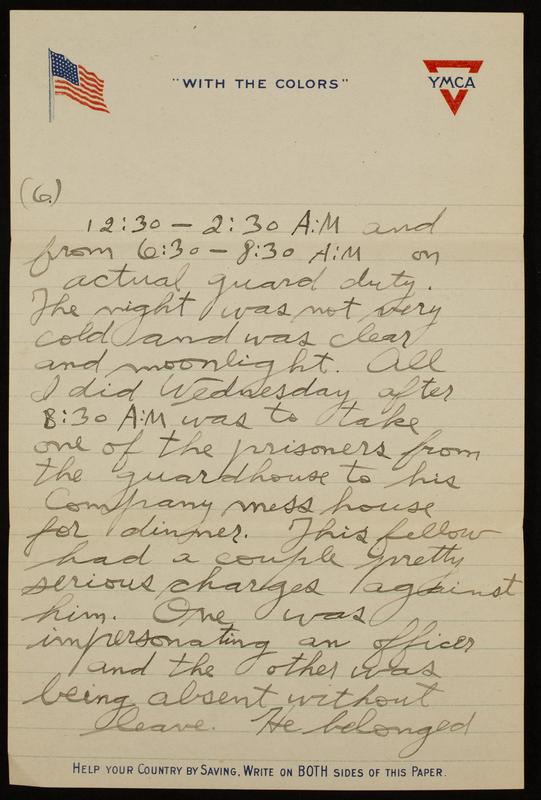 "WITH THE COLORS"
YMCA
(6.)
12:30 — 2:30 A.M and
from 6:30 — 8:30 A.M on
actual guard duty.
The night was not very
cold and was clear
and moonlight. All
I did Wednesday after
8:30 A.M was to take
one of the prisoners from
the guardhouse to his
Company mess house
for dinner. This fellow
had a couple pretty
serious charges against
him. One was
impersonating an officer
and the other was
being absent without
leave. He belonged
HELP YOUR COUNTRY BY SAVING, WRITE ON BOTH SIDES OF THIS PAPER.